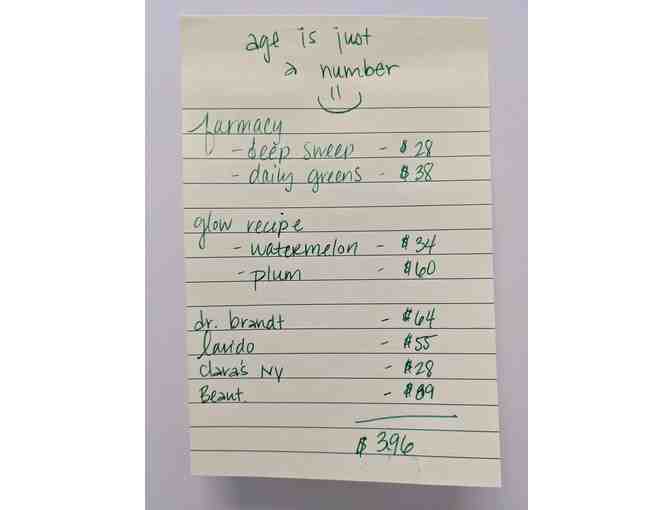 age is just
a number
farmacy
- deep sweep - $28
- daily greens - $38
glow recipe
- watermelon - $34
- plum - $60
dr. brandt - $64
lavido - $55
clara's NY - $28
Beaut. - $89
$396